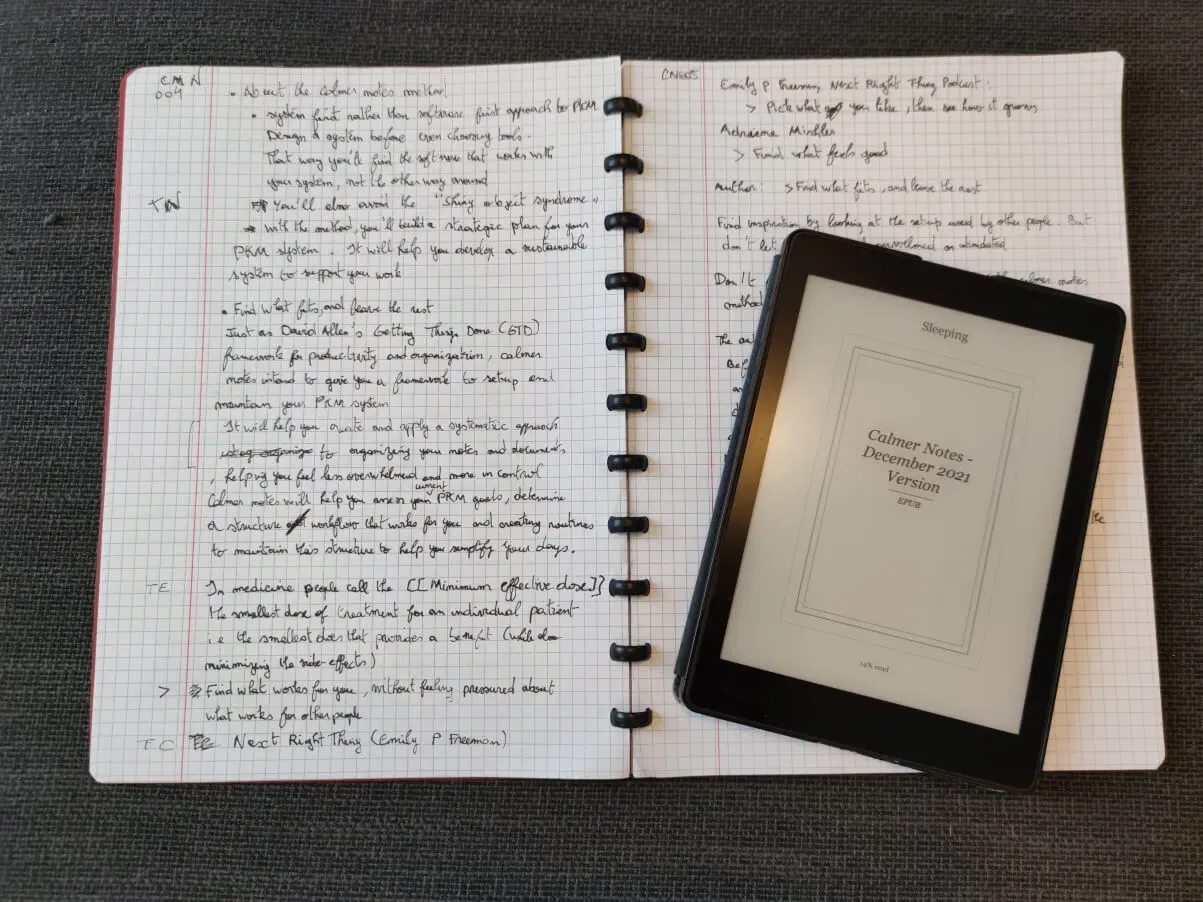 CMN
004
• About the Calmer notes method
• system first rather than software first approach to PKM
Design a system before even choosing tools.
That way you'll find the software that works with
your system, not the other way around
TN
You'll also avoid the "Shiny object syndrome"
→ with the method, you'll build a strategic plan for your
PKM system. It will help you develop a sustainable
system to support your work
• Find what fits, and leave the rest
Just as David Allen's Getting Things Done (GTD)
framework for productivity and organization, calmer
notes intend to give you a framework to setup and
maintain your PKM system
It will help you create and apply a systematic approach
to organizing your notes and documents
, helping you feel less overwhelmed and more in control
Calmer notes will help you assess your current PKM goals, determine
a structure workflow that works for you and creating routines
to maintain this structure to help you simplify your days.
TE In medicine people call the [[Minimum effective dose]]
the smallest dose of treatment for an individual patient
i.e the smallest does that provides a benefit (while also
minimizing the side-effects)
> Find what works for you, without feeling pressured about
what works for other people
TC TC Next Right Thing (Emily P Freeman)
CN005
Emily P Freeman, Next Right Thing Podcast:
> Pick what you like, then see how it grows
Adriene Mishler
> Find what feels good
Author: > Find what fits, and leave the rest
Find inspiration by looking at the setup used by other people. But
don't let overwhelmed or intimidated
Don't calmer notes
method
The
Sleeping
Calmer Notes -
December 2021
Version
EPUB
14% read